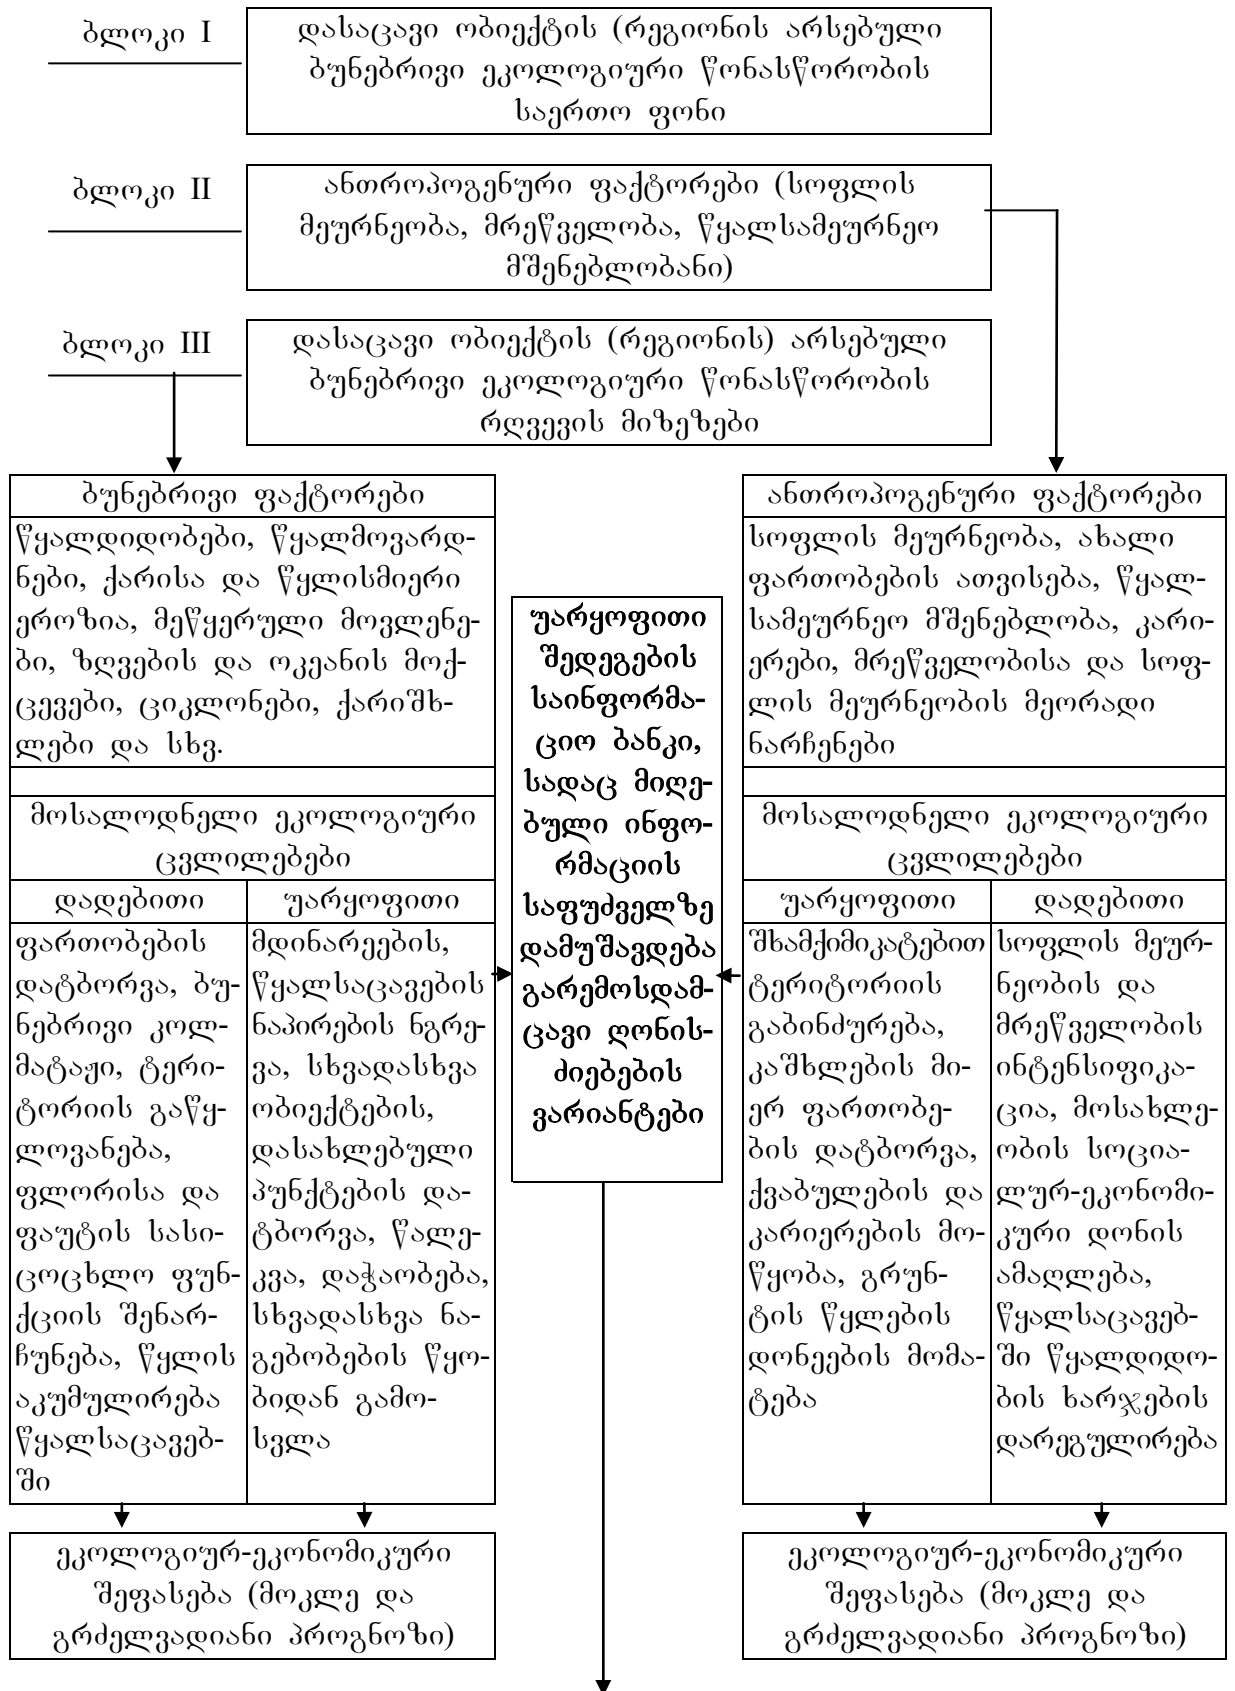 ბლოკი I
დასაცავი ობიექტის (რეგიონის არსებული
ბუნებრივი ეკოლოგიური წონასწორობის
საერთო ფონი
ბლოკი II
ანთროპოგენური ფაქტორები (სოფლის
მეურნეობა, მრეწველობა, წყალსამეურნეო
მშენებლობანი)
ბლოკი III
დასაცავი ობიექტის (რეგიონის) არსებული
ბუნებრივი ეკოლოგიური წონასწორობის
რღვევის მიზეზები
ბუნებრივი ფაქტორები
წყალდიდობები, წყალმოვარდ-
ნები, ქარისა და წყლისმიერი
ეროზია, მეწყერული მოვლენე-
ბი, ზღვების და ოკეანის მოქ-
ცევები, ციკლონები, ქარიშხ-
ლები და სხვ.
მოსალოდნელი ეკოლოგიური
ცვლილებები
დადებითი
ფართობების
დატბორვა, ბუ-
ნებრივი კოლ-
მატაჟი, ტერი-
ტორიის გაწყ-
ლოვანება,
ფლორისა და
ფაუტის სასი-
ცოცხლო ფუნ-
ქციის შენარ-
ჩუნება, წყლის
აკუმულირება
წყალსაცავებ-
ში
უარყოფითი
მდინარეების,
წყალსაცავების
ნაპირების ნგრე-
ვა, სხვადასხვა
ობიექტების,
დასახლებული
პუნქტების და-
ტბორვა, წალე-
კვა, დაჭაობება,
სხვადასხვა ნა-
გებობების წყო-
ბიდან გამო-
სვლა
ეკოლოგიურ-ეკონომიკური
შეფასება (მოკლე და
გრძელვადიანი პროგნოზი)
უარყოფითი
შედეგების
საინფორმა-
ციო ბანკი,
სადაც მიღე-
ბული ინფო-
რმაციის
საფუძველზე
დამუშავდება
გარემოსდამ-
ცავი ღონის-
ძიებების
ვარიანტები
ანთროპოგენური ფაქტორები
სოფლის მეურნეობა, ახალი
ფართობების ათვისება, წყალ-
სამეურნეო მშენებლობა, კარი-
ერები, მრეწველობისა და სოფ-
ლის მეურნეობის მეორადი
ნარჩენები
მოსალოდნელი ეკოლოგიური
ცვლილებები
უარყოფითი
შხამქიმიკატებით
ტერიტორიის
გაბინძურება,
კაშხლების მი-
ერ ფართობე-
ბის დატბორვა,
ქვაბულების და
კარიერების მო-
წყობა, გრუნ-
ტის წყლების
დონეების მომა-
ტება
დადებითი
სოფლის მეურ-
ნეობის და
მრეწველობის
ინტენსიფიკა-
ცია, მოსახლე-
ობის სოცია-
ლურ-ეკონომი-
კური დონის
ამაღლება,
წყალსაცავებ-
ში წყალდიდო-
ბის ხარჯების
დარეგულირება
ეკოლოგიურ-ეკონომიკური
შეფასება (მოკლე და
გრძელვადიანი პროგნოზი)